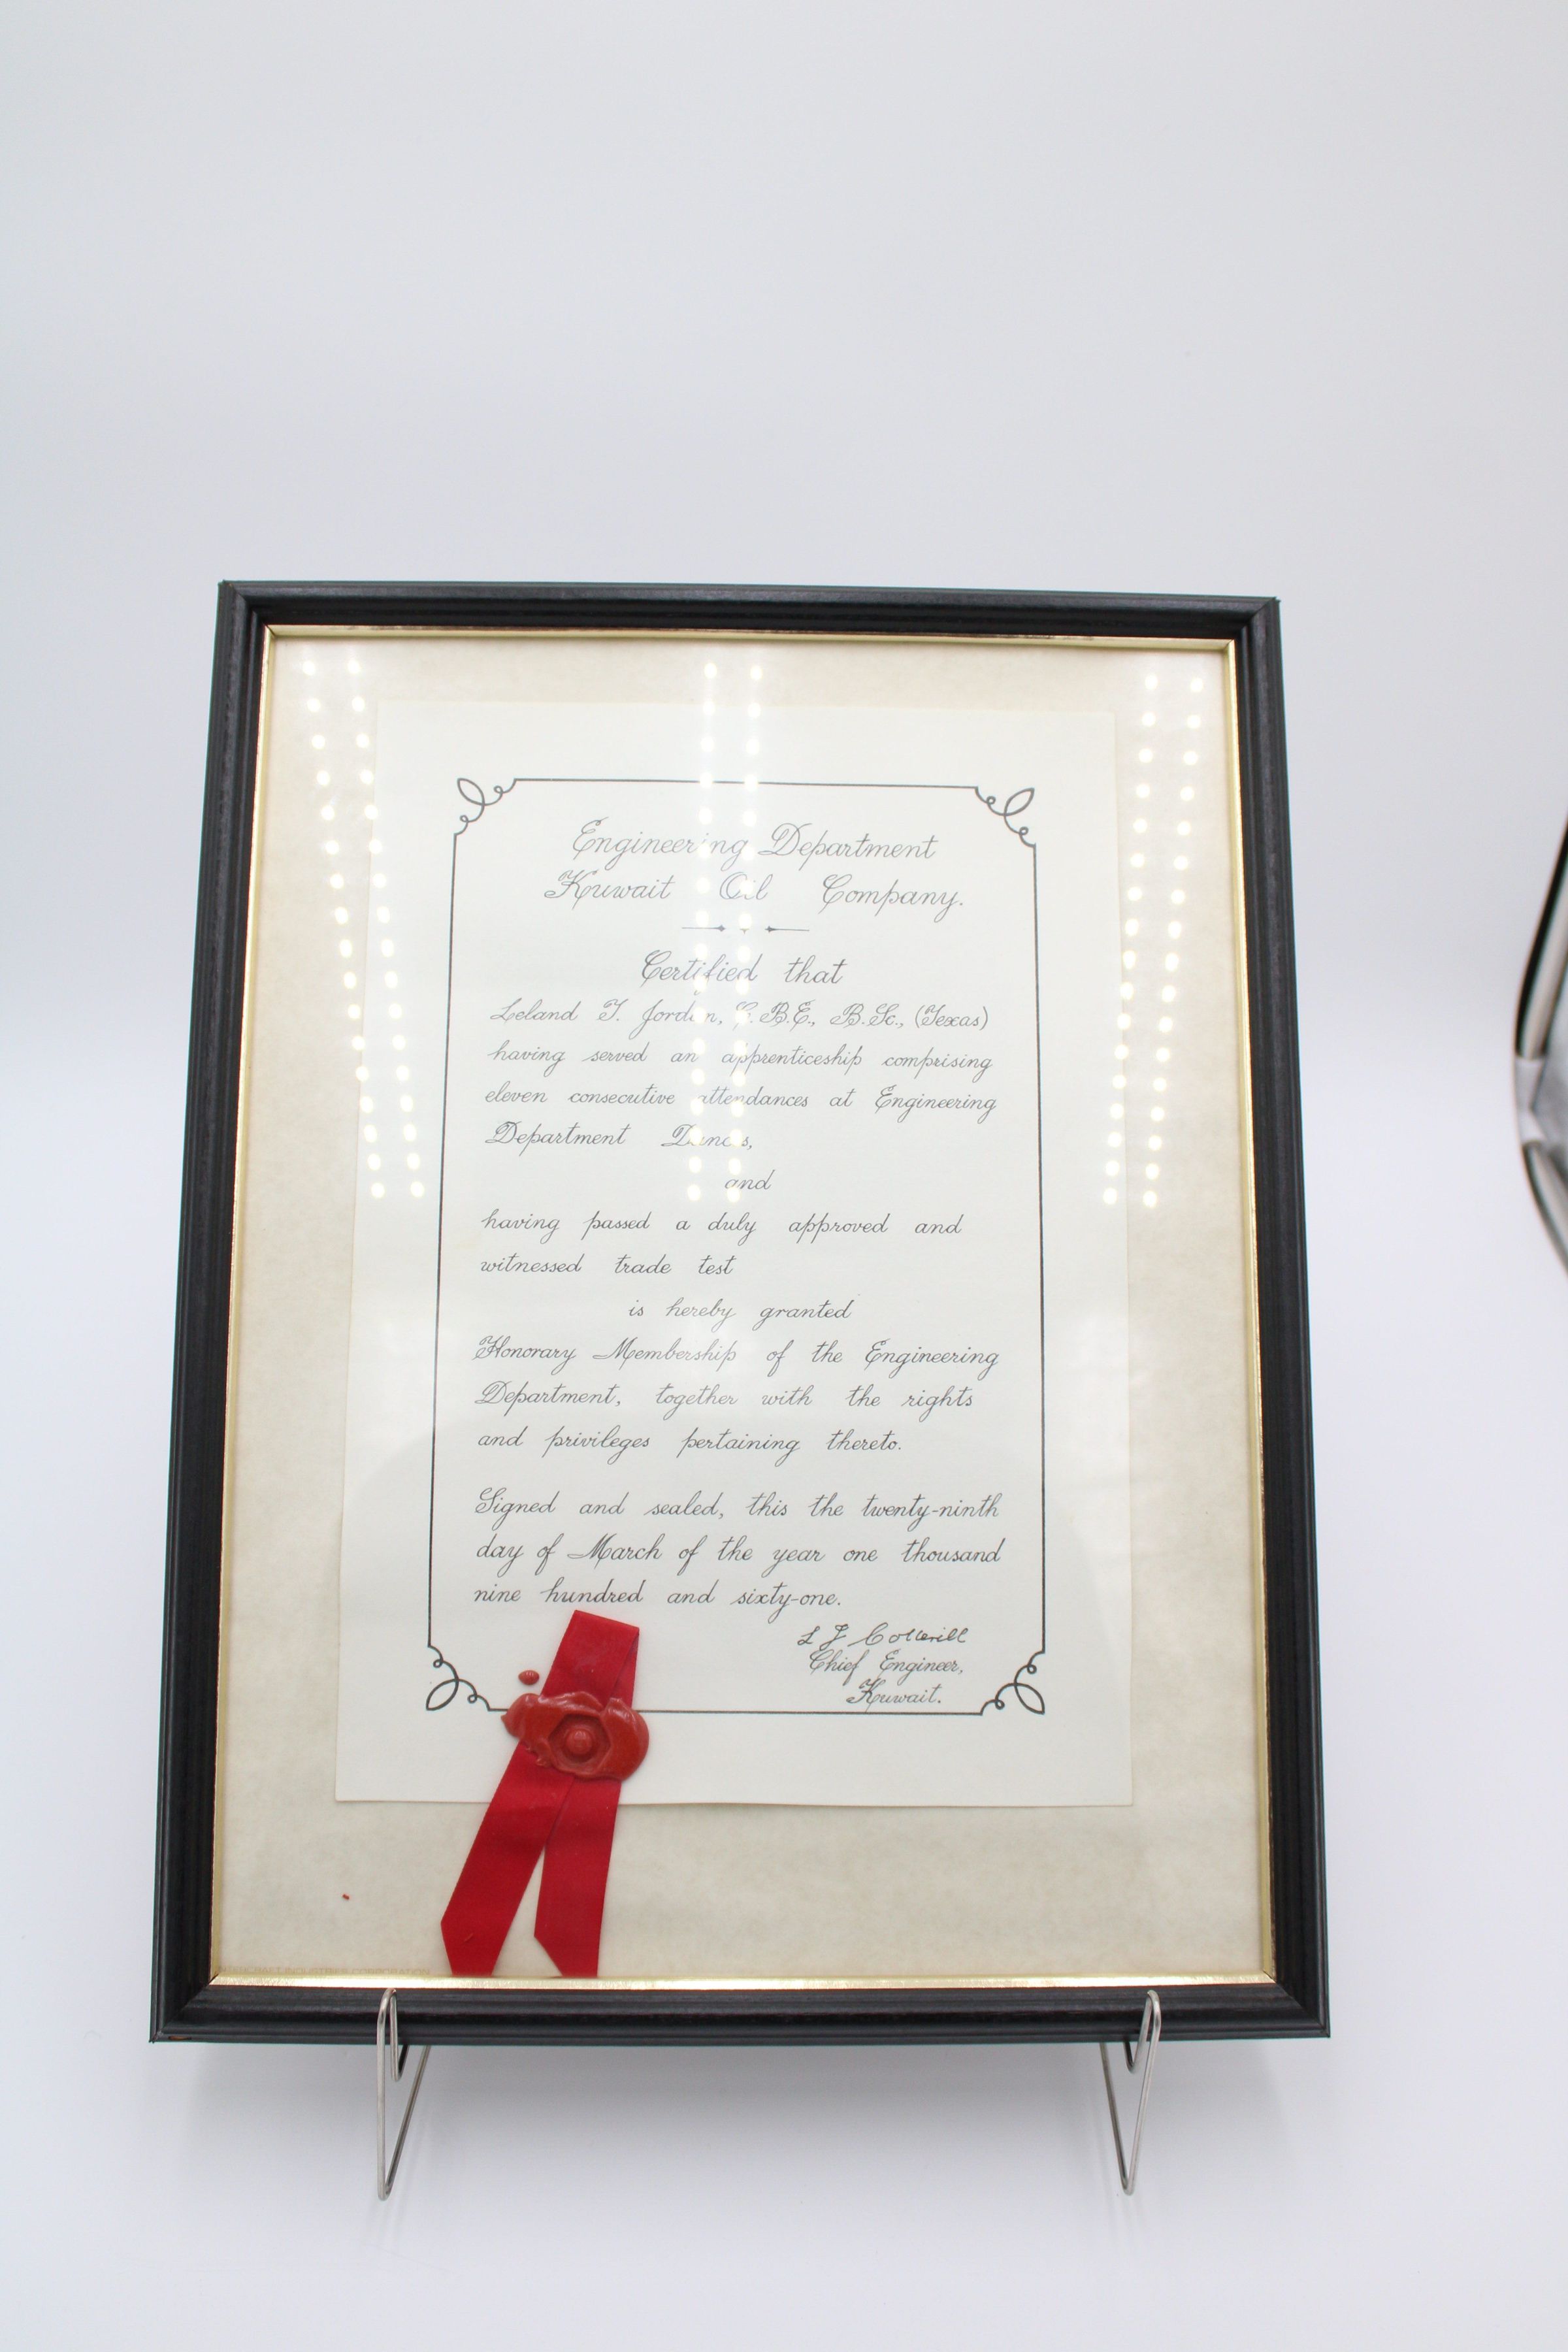 Engineering Department
Kuwait Oil Company.
Certified that
Leland T. Jordan, C.B.E., B.Sc., (Texas)
having served an apprenticeship comprising
eleven consecutive attendances at Engineering
Department Dances,
and
having passed a duly approved and
witnessed trade test
is hereby granted
Honorary Membership of the Engineering
Department, together with the rights
and privileges pertaining thereto.
Signed and sealed, this the twenty-ninth
day of March of the year one thousand
nine hundred and sixty-one.
Chief Engineer,
Kuwait.
INDUSTRIES CORPORATION